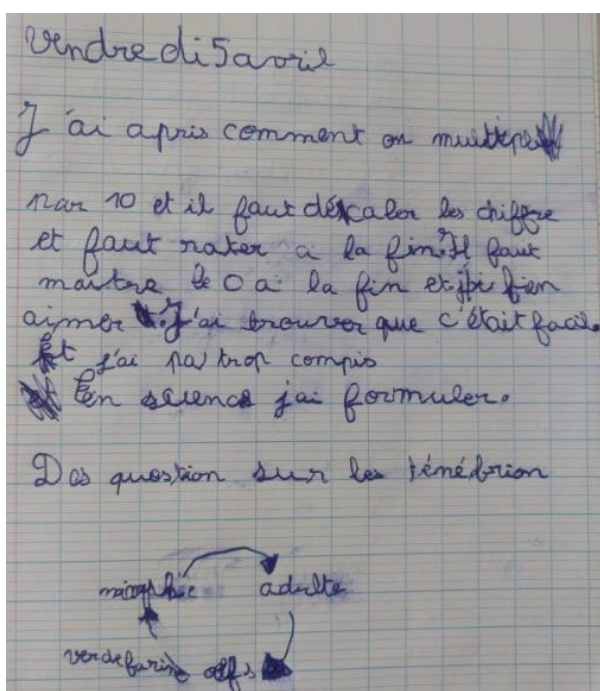 Vendredi 5 avril
J'ai apris comment on multiplie
par 10 et il faut décaler les chiffre
et faut noter a la fin. Il faut
maitre le 0 a la fin et j'ai bien
aimer J'ai trouver que c'était facil.
Et j'ai pa trop compis
En science j'ai formuler.
Des question sur les ténébrion
adulte
ver de farine oeufs